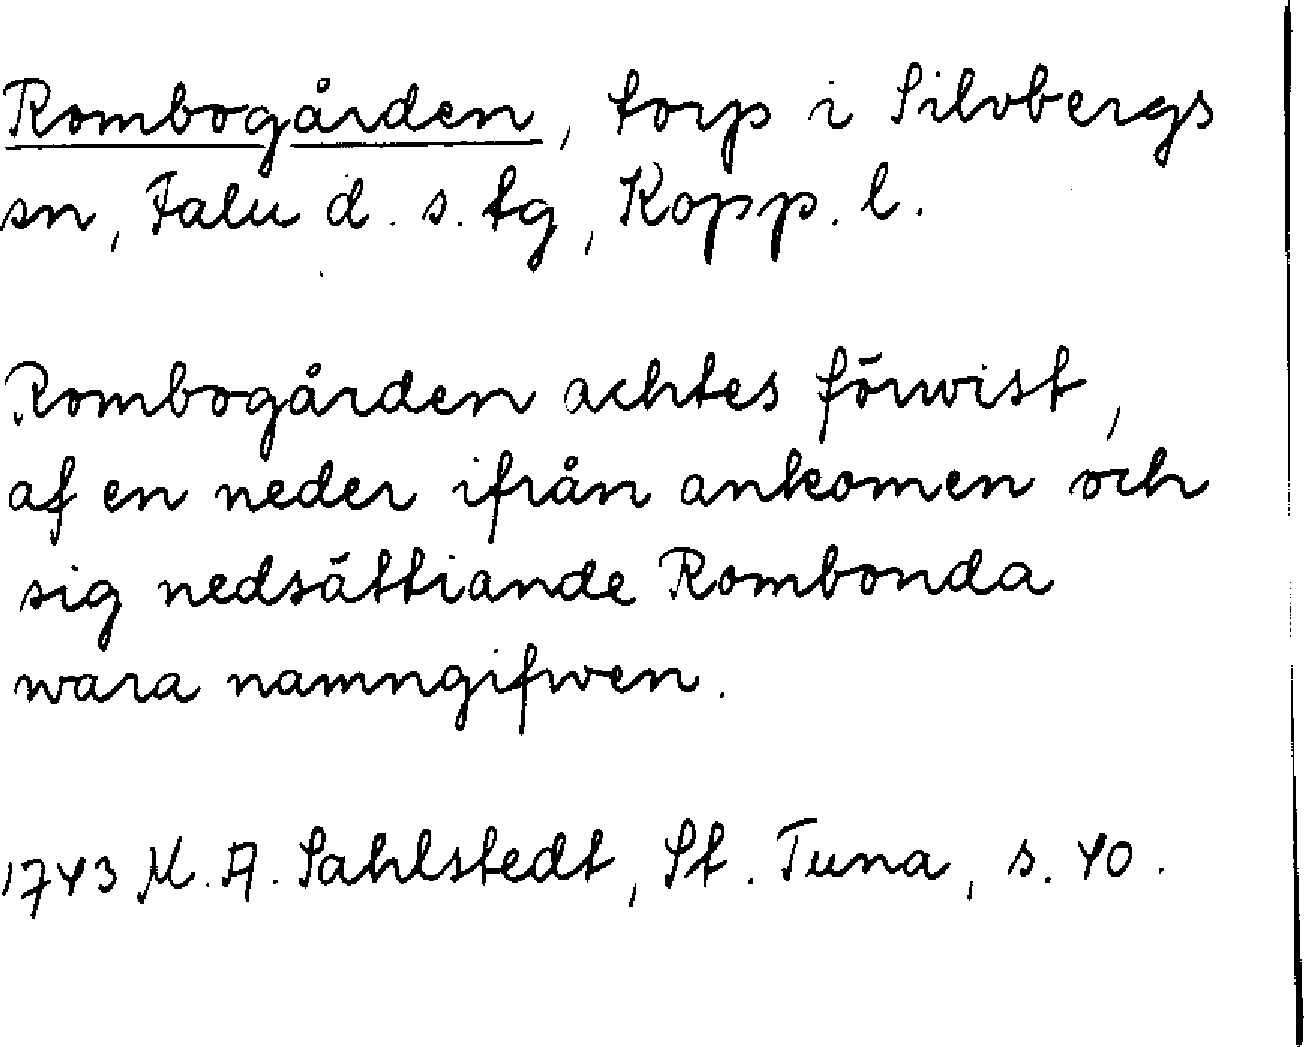 Rombogården, torp i Silvbergs
sn, Falu d. s. tg, Kopp. l.
Rombogården achtes förwist,
af en neder ifrån ankomen och
sig nedsättiande Rombonda
wara namngifwen.
1743 M. A. Sahlstedt, St. Tuna, s. 40.